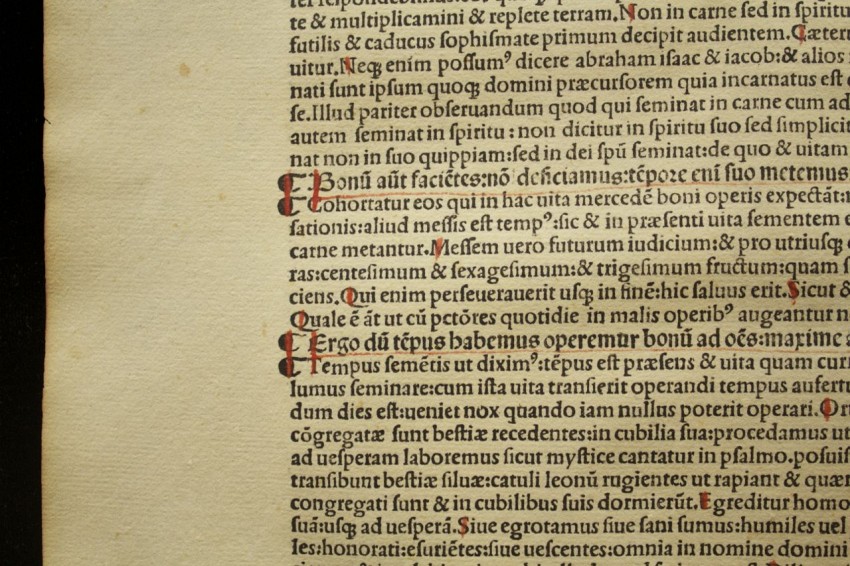 te & multiplicamini & replete terram.Non in carne sed in spiritu
futilis & caducus sophismate primum decipit audientem.Cæteru
uitur.Neqꝫ enim possumꝰ dicere abraham isaac & iacob:& alios
nati sunt ipsum quoqꝫ domini præcursorem quia incarnatus est
se.Illud pariter obseruandum quod qui seminat in carne cum ad
autem seminat in spiritu:non dicitur in spiritu suo sed simplicit
nat non in suo quippiam:sed in dei spū seminat:de quo & uitam
¶ Bonū aūt faciētes:nō deficiamus:tēpore eni suo metemus
¶ Cohortatur eos qui in hac uita mercedē boni operis expectāt:
sationis:aliud messis est tempꝰ:sic & in præsenti uita sementem
carne metantur.Messem uero futurum iudicium:& pro utriusqꝫ
ras:centesimum & sexagesimum:& trigesimum fructum:quam
ciens.Qui enim perseuerauerit usqꝫ in finē:hic saluus erit.Sicut &
Quale ē āt ut cū pctōres quotidie in malis operibꝰ augeantur
¶ Ergo dū tēpus habemus operemur bonū ad oēs:maxime
¶ Tempus semētis ut diximꝰ:tēpus est præsens & uita quam
lumus seminare:cum ista uita transierit operandi tempus aufert
dum dies est:ueniet nox quando iam nullus poterit operari.
cōgregatæ sunt bestiæ recedentes:in cubilia sua:procedamus ut
ad uesperam laboremus sicut mystice cantatur in psalmo.posuis
transibunt bestiæ siluæ:catuli leonū rugientes ut rapiant & quær
congregati sunt & in cubilibus suis dormierūt.Egreditur homo
suā:usqꝫ ad uesperā.Siue egrotamus siue sani sumus:humiles uel
les:honorati:esuriētes:siue uescentes:omnia in nomine domini